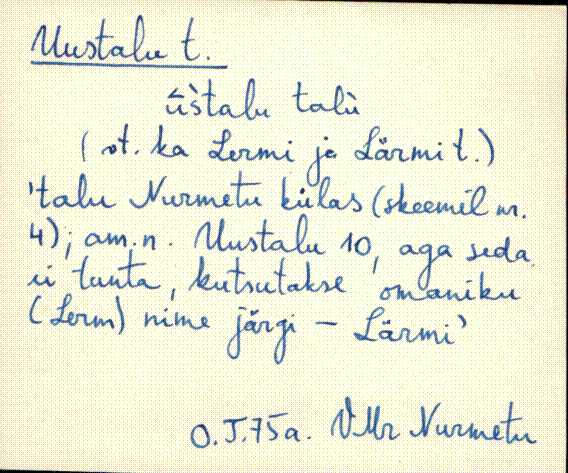 Uustalu t.
ūs̀talu talù
(vt. ka Lermi ja Lärmi t.)
'talu Nurmetu külas (skeemil nr.
4); am.n. Uustalu 10, aga seda
ei tunta, kutsutakse omaniku
(Lerm) nime järgi – Lärmi'
O.J.75a. VMr Nurmetu